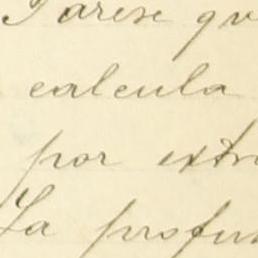 Parese qu
calcula
por extr
La profun